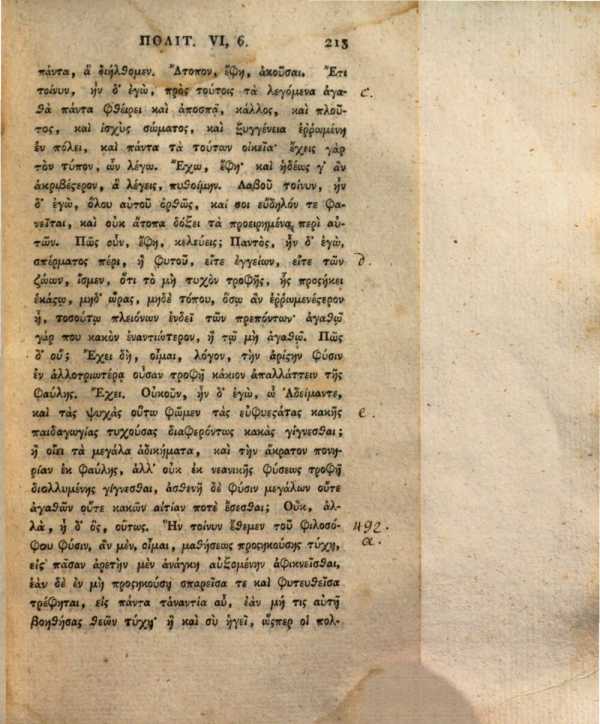 ΠΟΛΙΤ. VI, 6. 213
πάντα, ἃ διήλθομεν. Ἄτοπον, ἔφη, ἀκοῦσαι. Ἔτι
τοίνυν, ἦν δ' ἐγὼ, πρὸς τούτοις τὰ λεγόμενα ἀγα- c.
θὰ πάντα φθείρει καὶ ἀποσπᾷ, κάλλος, καὶ πλοῦ-
τος, καὶ ἰσχὺς σώματος, καὶ ξυγγένεια ἐῤῥωμένη
ἐν πόλει, καὶ πάντα τὰ τούτων οἰκεῖα· ἔχεις γὰρ
τὸν τύπον, ὧν λέγω. Ἔχω, ἔφη· καὶ ἡδέως γ' ἂν
ἀκριβέϛερον, ἃ λέγεις, πυθοίμην. Λαβοῦ τοίνυν, ἦν
δ' ἐγὼ, ὅλου αὐτοῦ ὀρθῶς, καί σοι εὔδηλόν τε φα-
νεῖται, καὶ οὐκ ἄτοπα δόξει τὰ προειρημένα περὶ αὐ-
τῶν. Πῶς οὖν, ἔφη, κελεύεις; Παντὸς, ἦν δ' ἐγὼ,
σπέρματος πέρι, ἢ φυτοῦ, εἴτε ἐγγείων, εἴτε τῶν d.
ζώων, ἴσμεν, ὅτι τὸ μὴ τυχὸν τροφῆς, ἧς προσήκει
ἑκάϛῳ, μηδ' ὥρας, μηδὲ τόπου, ὅσῳ ἂν ἐῤῥωμενέϛερον
ᾖ, τοσούτῳ πλειόνων ἐνδεῖ τῶν πρεπόντων· ἀγαθῷ
γάρ που κακὸν ἐναντιώτερον, ἢ τῷ μὴ ἀγαθῷ. Πῶς
δ' οὔ; Ἔχει δὴ, οἶμαι, λόγον, τὴν ἀρίϛην φύσιν
ἐν ἀλλοτριωτέρᾳ οὖσαν τροφῇ κάκιον ἀπαλλάττειν τῆς
φαύλης. Ἔχει. Οὐκοῦν, ἦν δ' ἐγὼ, ὦ Ἀδείμαντε,
καὶ τὰς ψυχὰς οὕτω φῶμεν τὰς εὐφυεϛάτας κακῆς e.
παιδαγωγίας τυχούσας διαφερόντως κακὰς γίγνεσθαι;
ἢ οἴει τὰ μεγάλα ἀδικήματα, καὶ τὴν ἄκρατον πονη-
ρίαν ἐκ φαύλης, ἀλλ' οὐκ ἐκ νεανικῆς φύσεως τροφῇ
διολλυμένης γίγνεσθαι, ἀσθενῆ δὲ φύσιν μεγάλων οὔτε
ἀγαθῶν οὔτε κακῶν αἰτίαν ποτὲ ἔσεσθαι; Οὔκ, ἀλ-
λὰ, ἦ δ' ὃς, οὕτως. Ἣν τοίνυν ἔθεμεν τοῦ φιλοσό- 492
φου φύσιν, ἂν μὲν, οἶμαι, μαθήσεως προσηκούσης τύχῃ, a.
εἰς πᾶσαν ἀρετὴν μὲν ἀνάγκη αὐξομένην ἀφικνεῖσθαι,
ἐὰν δὲ ἐν μὴ προσηκούσῃ σπαρεῖσα τε καὶ φυτευθεῖσα
τρέφηται, εἰς πάντα τἀναντία αὖ, ἐὰν μή τις αὐτῇ
βοηθήσας θεῶν τύχῃ· ἢ καὶ σὺ ἡγεῖ, ὥσπερ οἱ πολ-